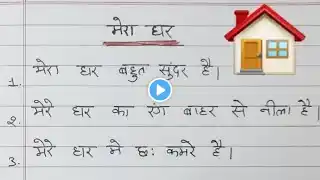 मेरा घर
1. मेरा घर बहुत सुंदर है।
2. मेरे घर का रंग बाहर से नीला है।
3. मेरे घर मे छः कमरे है।